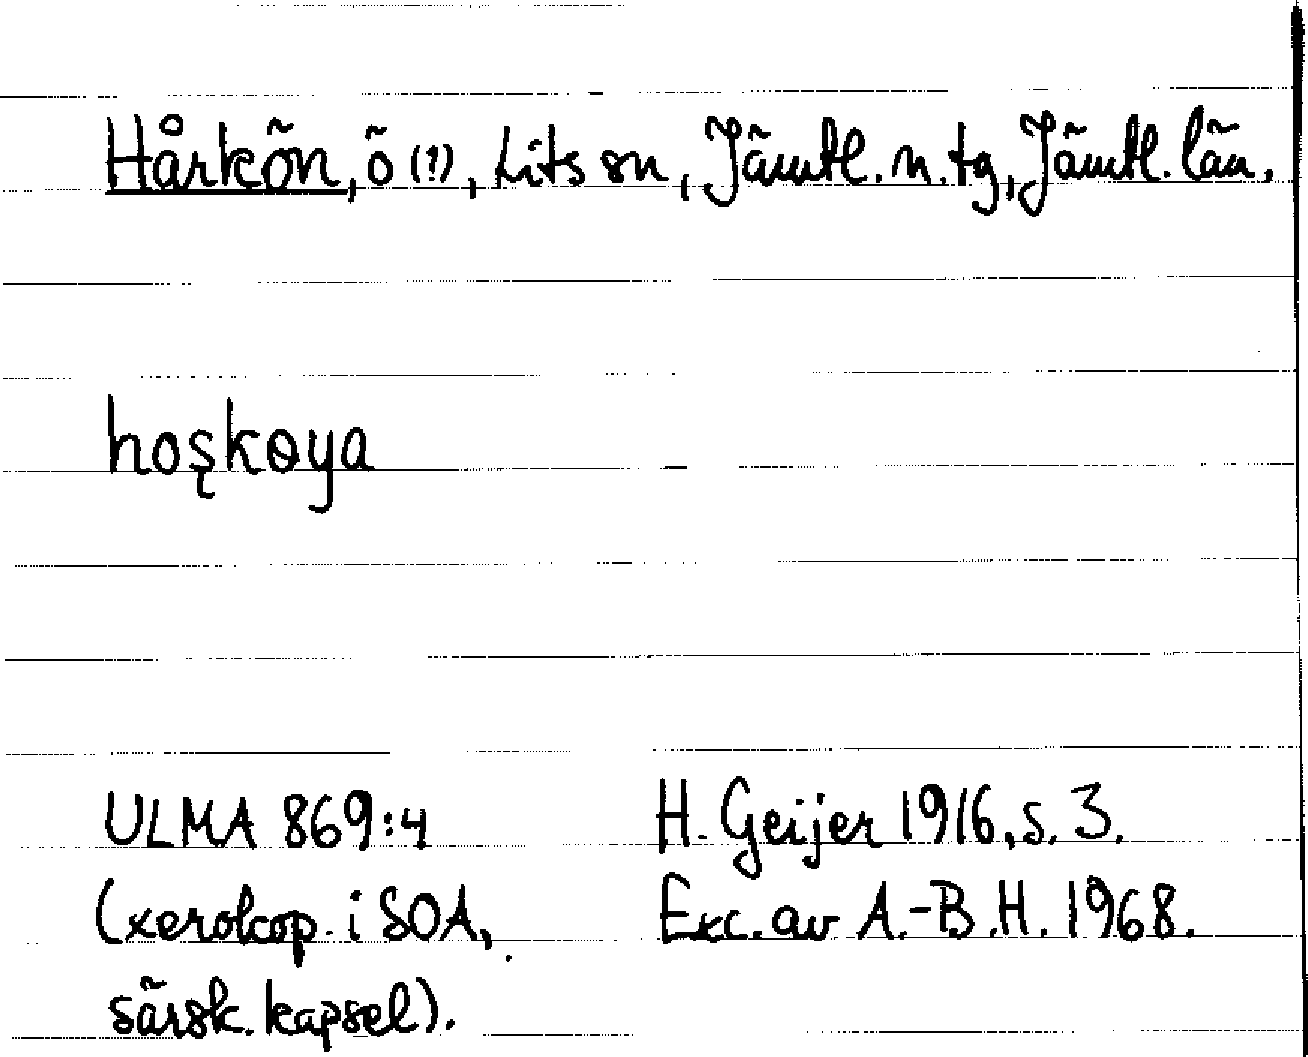 Hårkön, ö (?), Lits sn, Jämtl. n. tg, Jämtl. län.
hoşkɵya
ULMA 869:4 H. Geijer 1916, s. 3.
(xerokop. i SOA, Exc. av A.-B.H. 1968.
särsk. kapsel).